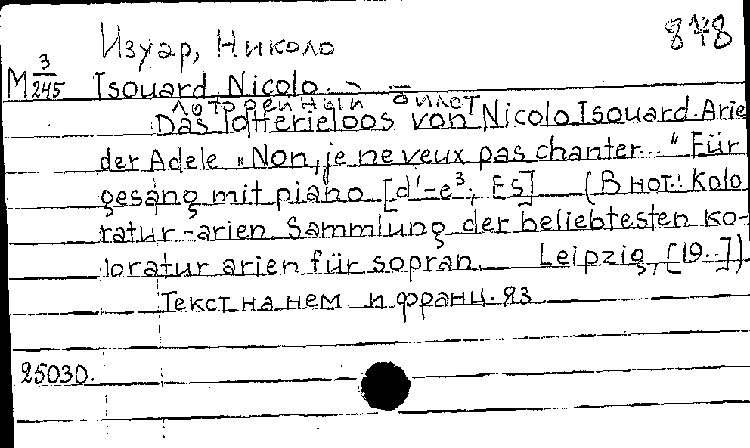 Изуар, Николо 848
М 3/245 Isouard, Nicolo.
лотерейный билет
Das lotterieloos von Nicolo Isouard. Arie
der Adele „Non, je ne veux pas chanter..." Für
gesang mit piano [d'-e³; Es] (В нот.: Kolo
ratur-arien. Sammlung der beliebtesten ko-
loratur arien für sopran. Leipzig, [19..])
Текст на нем и франц. яз
25030.